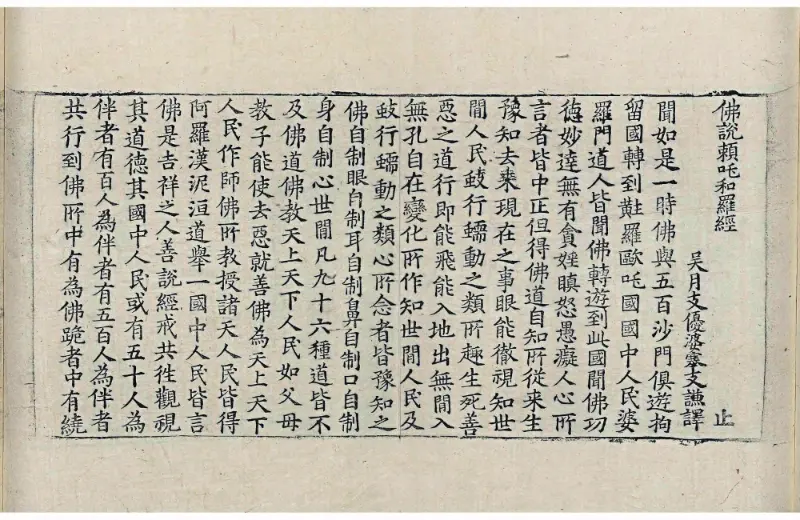 佛說賴吒和羅經 止
吳月支優婆塞支謙譯
聞如是一時佛與五百沙門俱遊拘
留國轉到黈羅歐吒國國中人民婆
羅門道人皆聞佛轉遊到此國聞佛功
德妙達無有貪婬瞋怒愚癡人心所
言者皆中正但得佛道自知所從来生
豫知去来現在之事眼能徹視知世
間人民蚑行蠕動之類所趣生死善
惡之道行即能飛能入地出無間入
無孔自在變化所作知世間人民及
蚑行蠕動之類心所念者皆豫知之
佛自制眼自制耳自制鼻自制口自制
身自制心世間凡九十六種道皆不
及佛道佛教天上天下人民如父母
教子能使去惡就善佛為天上天下
人民作師佛所教授諸天人民皆得
阿羅漢泥洹道舉一國中人民皆言
佛是吉祥之人善說經戒共徃觀視
其道德其國中人民或有五十人為
伴者有百人為伴者有五百人為伴者
共行到佛所中有為佛跪者中有繞